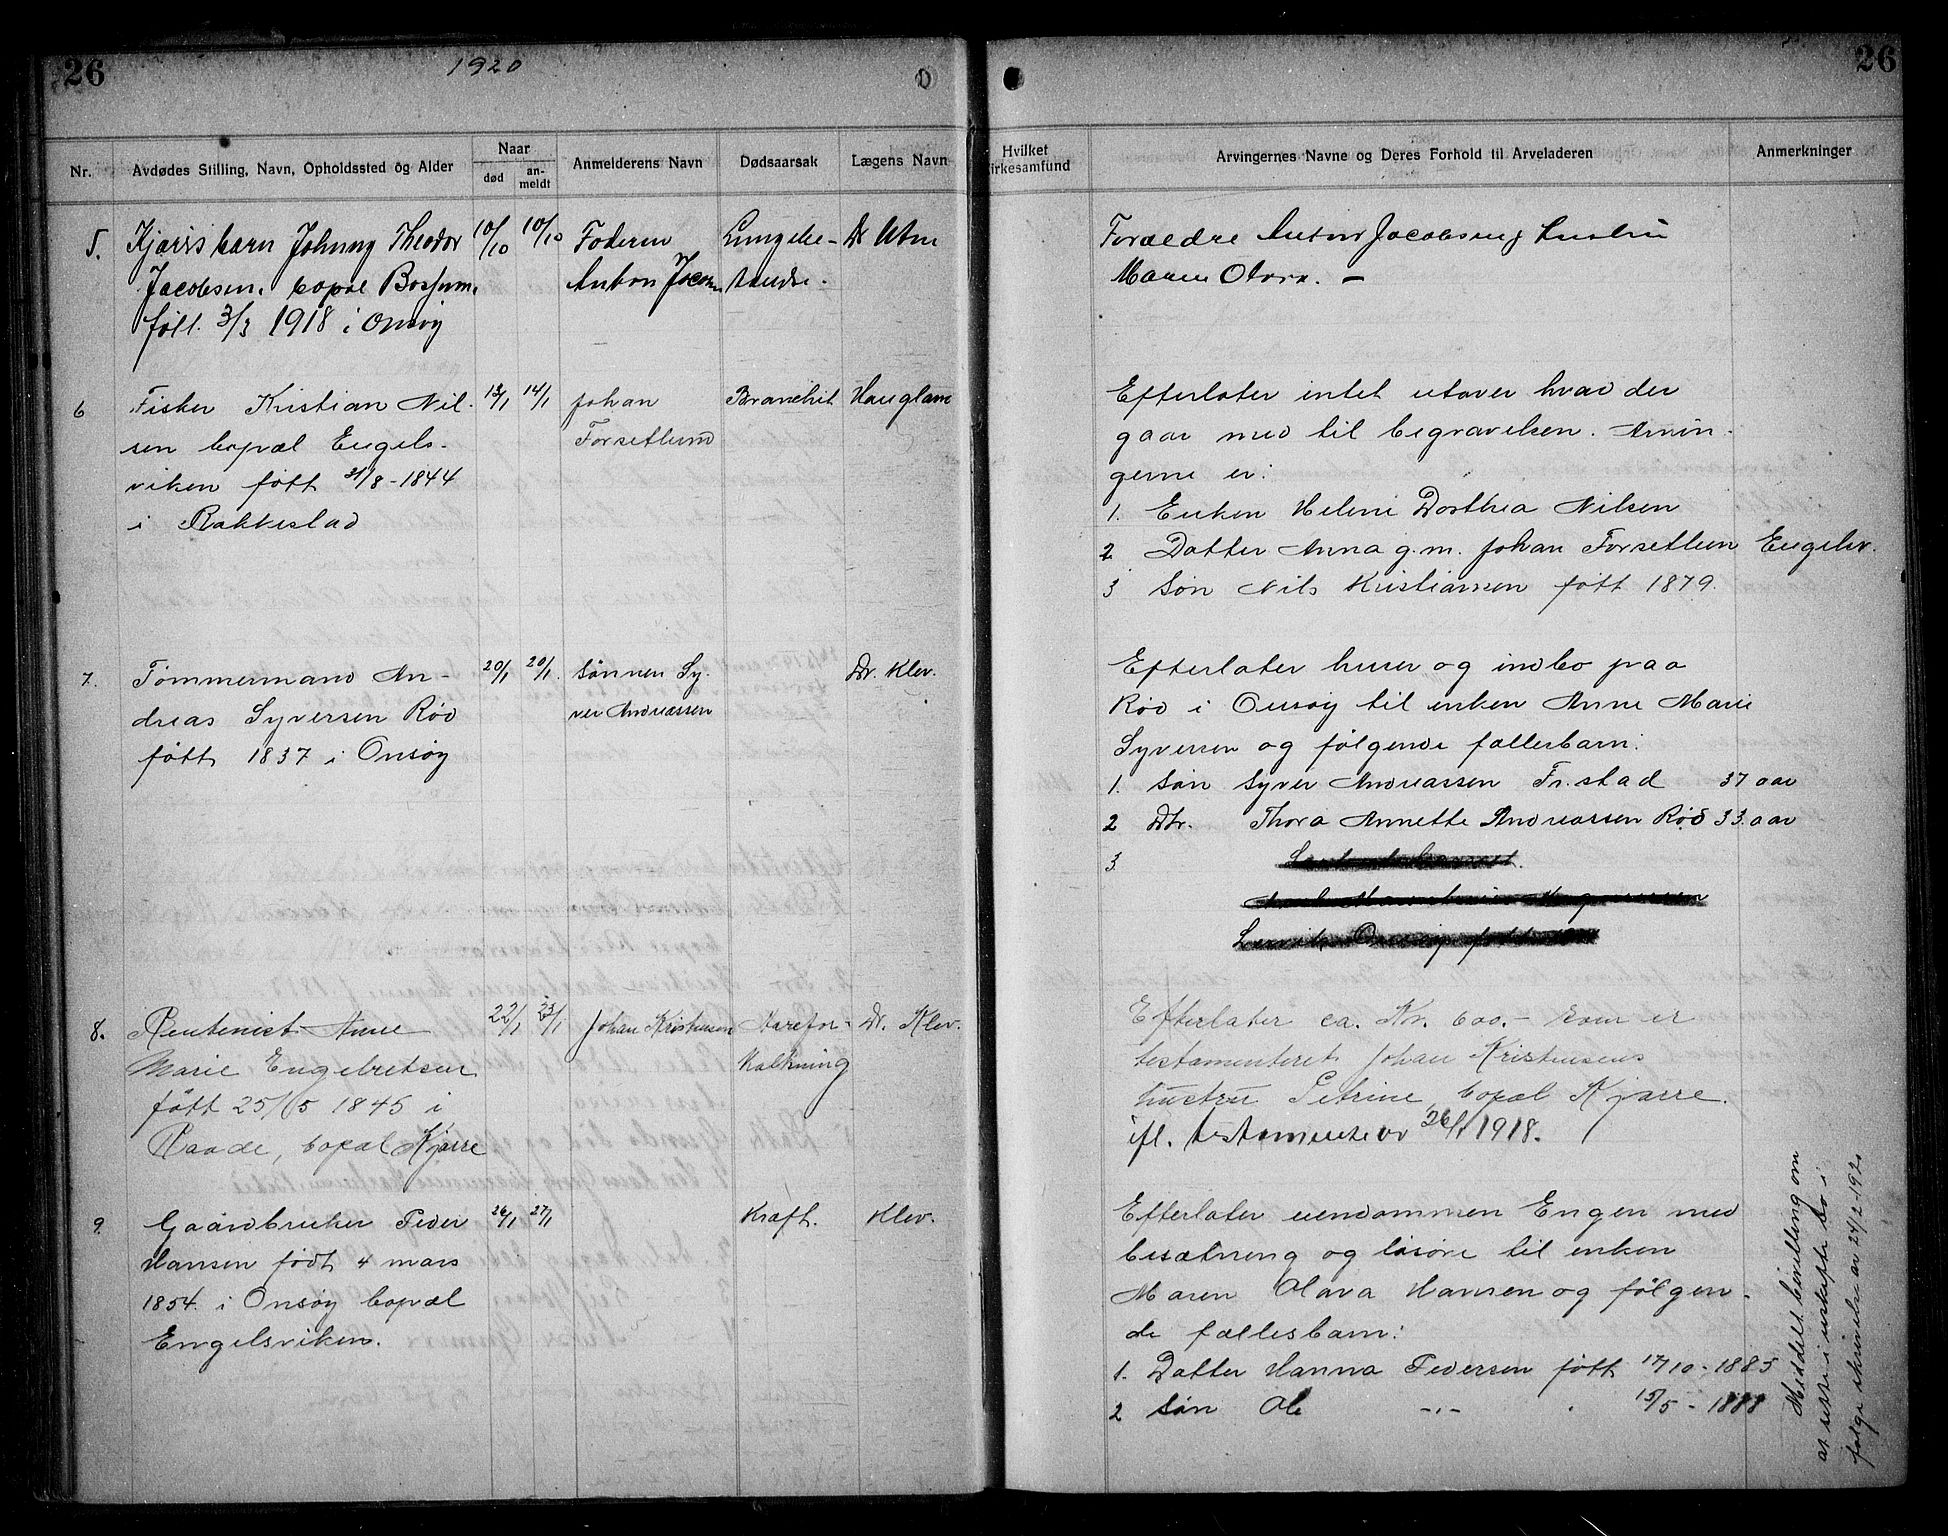 26
1920
D
26
Nr.
Avdødes Stilling, Navn, Opholdssted og Alder
Naar
død
an-
meldt
Anmelderens Navn
Dødsaarsak
Lægens Navn
Hvilket
irkesamfund
Arvingernes Navne og Deres Forhold til Arveladeren
Anmerkninger
5.
Kjørisbarn Johnny Theodor
Jacobsen. bopæl Bossum.
født. 3/3 1918 i Onsøy
10/10
10/10
Faderen
Anton Jacobs.
Lungebe-
tændse.
Dr
Forældre Anton Jacobsen og hustru
Maren Olava. –
6
Fisker Kristian Nil-
sen bopæl Engels-
viken født 31/8-1844
i Rakkestad
13/1
14/1
Johan
Forsetlund
Bronchit
Hauglam
Efterlater intet utover hvad der
gaar med til begravelsen. Arvin-
gerne er:
1. Enken Helene Dorthea Nilsen
2 Datter Anna g.m. Johan Forsetlun Engelsv.
3 Søn Nils Kristiansen født 1879.
7.
Tømmermand An-
dreas Syversen Rød
født 1837 i Onsøy
20/1
20/1.
Sønnen Sy-
ver Andreassen
Dr. Klev.
Efterlater huser og indbo paa
Rød i Onsøy til enken Anne Marie
Syversen og følgende fællesbarn:
1. Søn Syver Andreassen Fr.stad 37 aar
2 Dtr. Thora Annette Andreassen Rød 33 aar
3
8.
Rentenist Anne
Marie Engebretsen
født 25/5 1845 i
Raade, bopæl Kjærre
22/1
23/1
Johan Kristensen
Aarefor-
kalkning
Dr. Klev.
Efterlater ca. Kr. 600.- som er
testamenteret Johan Kristensens
hustru Petrine, bopæl Kjærre.
ifl. testamente av 26/1 1918.
9.
Gaardbruker Peder
Hansen født 4 mars
1854. i Onsøy bopæl
Engelsviken.
26/1
27/1
Kræft.
Klev.
Efterlater eiendommen Engen med
besætning og løsøre til enken
Maren Olava Hansen og følgen-
de fællesbarn:
1. Datter Hanna Pedersen født 17/10-1885
2 Søn Ole -"- " 15/5-1888
Meddelt bevilling om
at sitte i uskiftet bo i
følge skrivelse av 24/2-1920